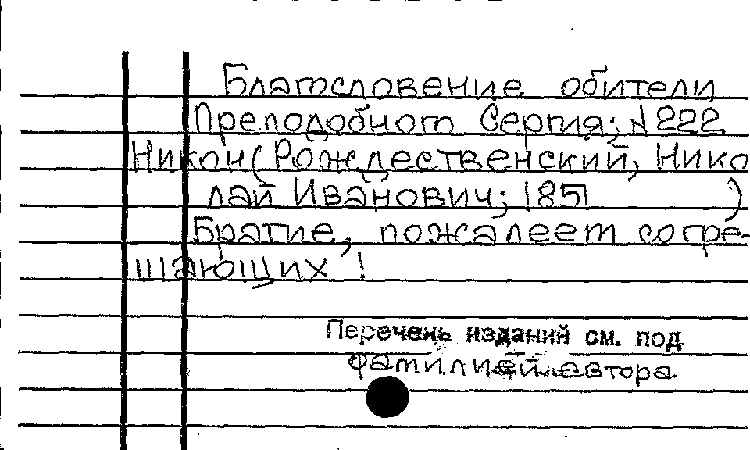 Благословение обители
Преподобного Сергия; N 222
Никон (Рождественский, Нико
лай Иванович; 1851 )
Братие, пожалеет согре-
шающих!
Перечень изданий см. под
фамилией автора